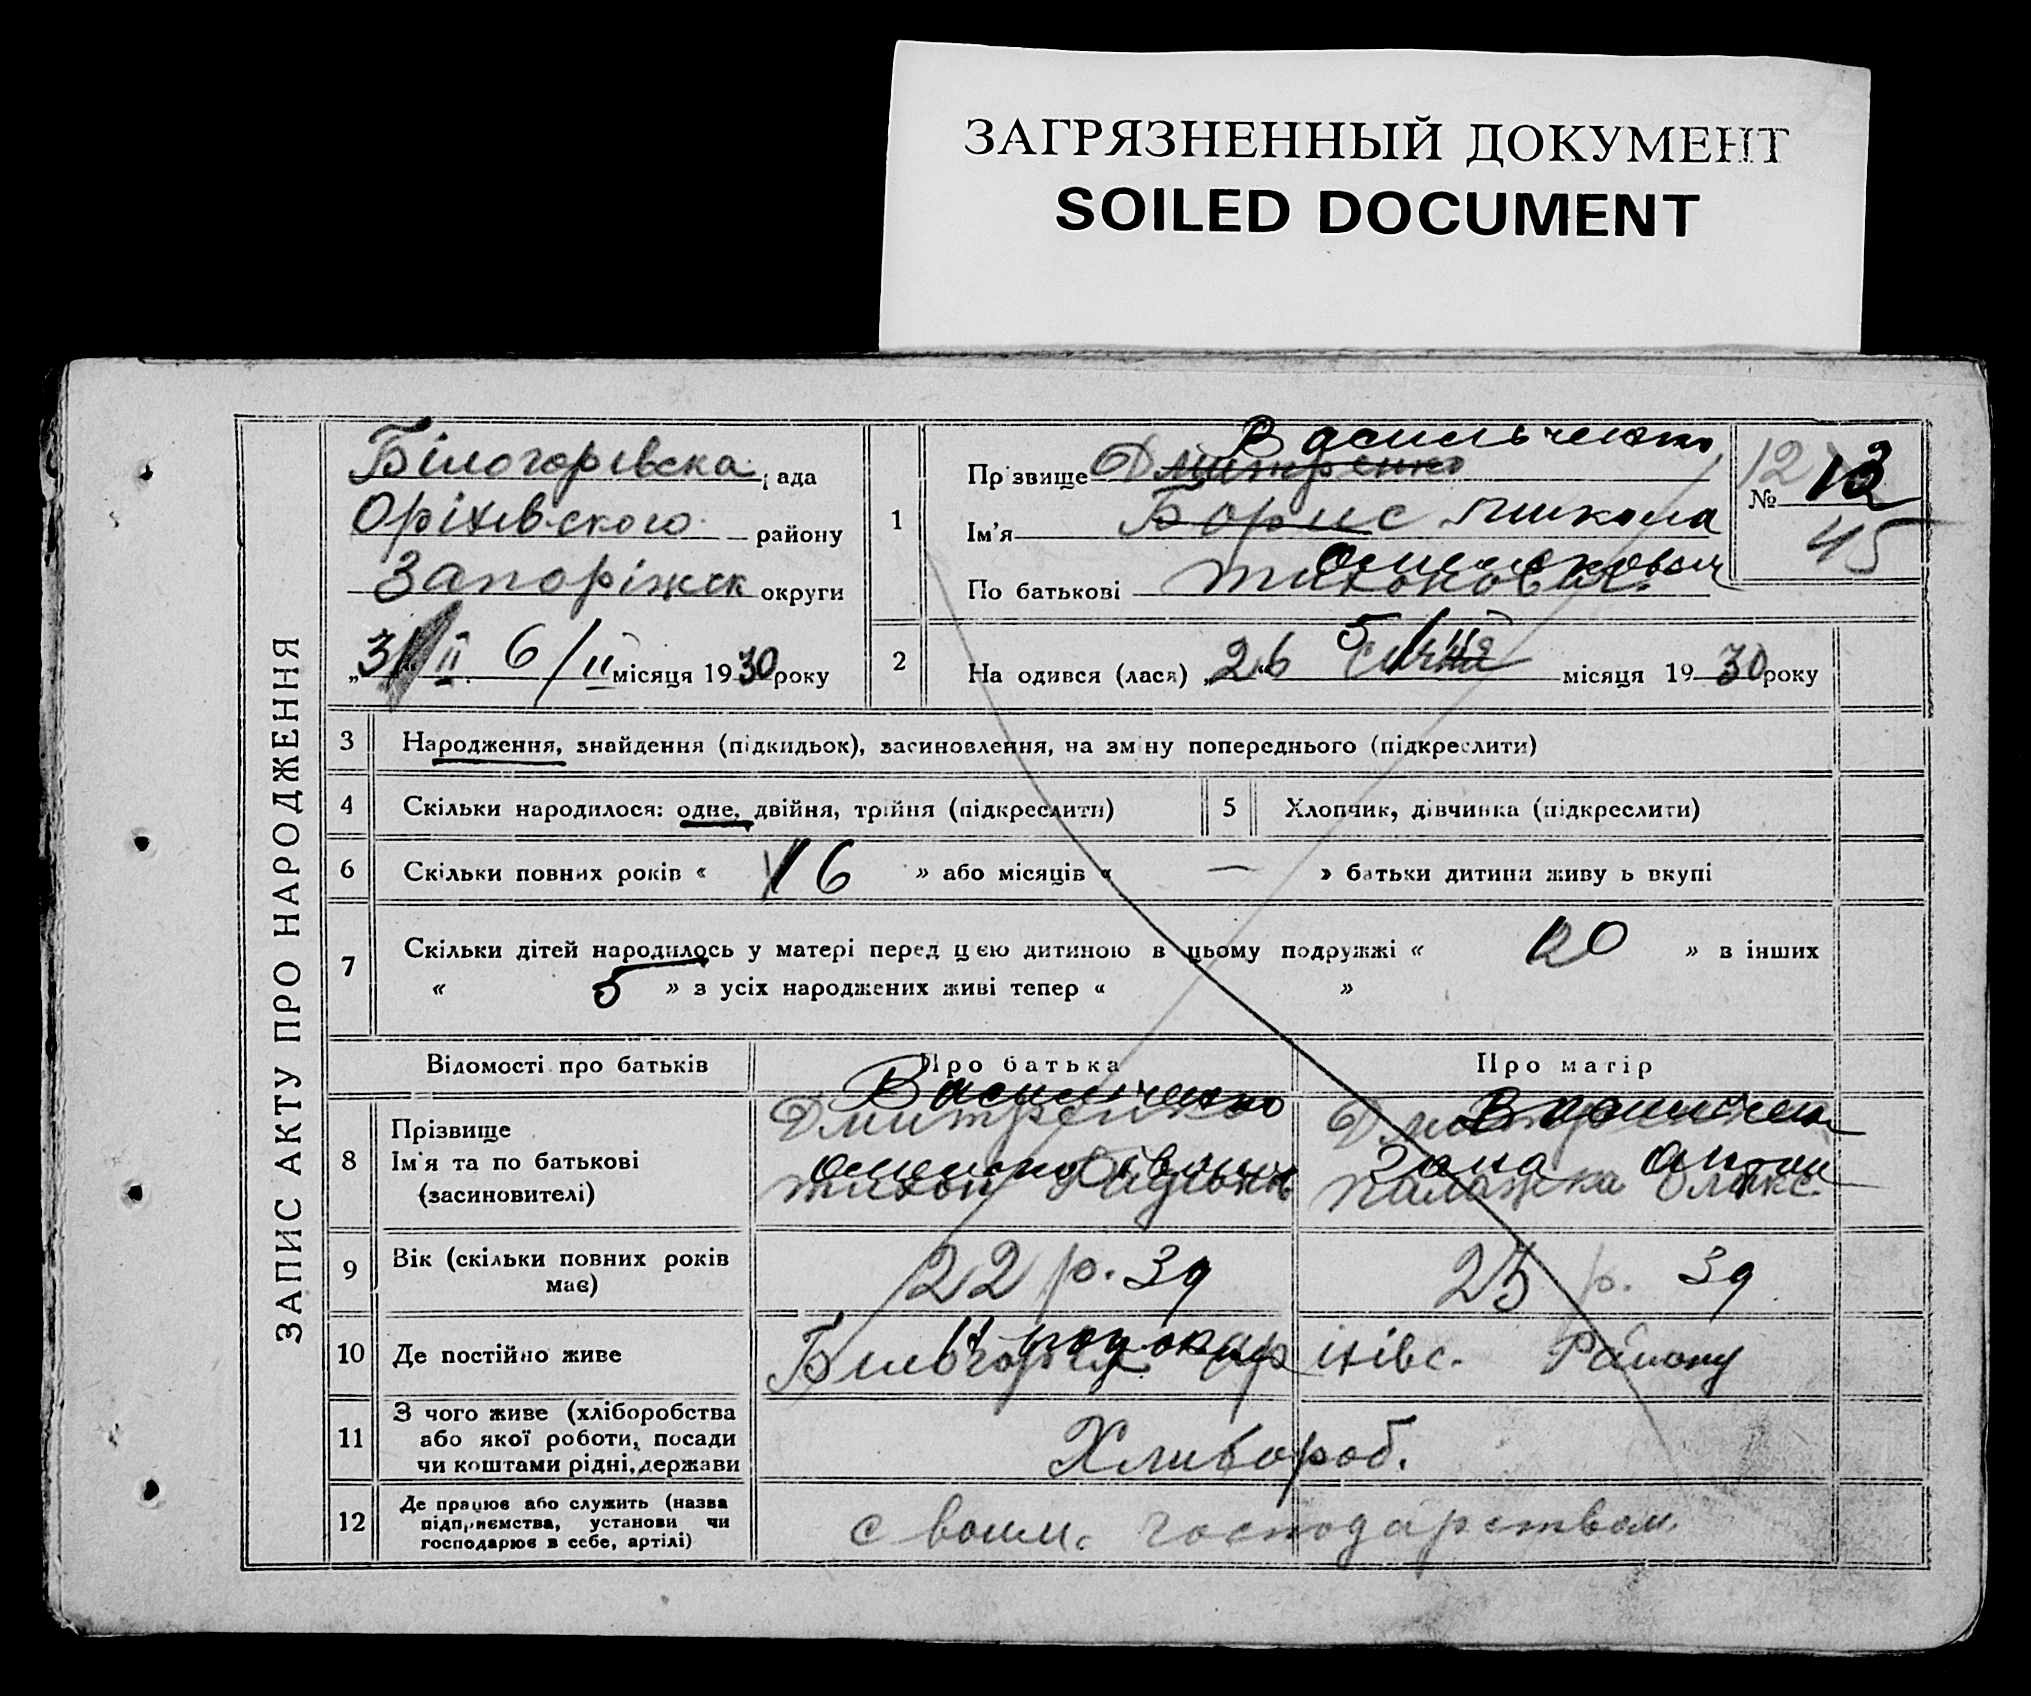 ЗАГРЯЗНЕННЫЙ ДОКУМЕНТ
SOILED DOCUMENT
ЗАПИС АКТУ ПРО НАРОДЖЕННЯ
Білогорівска рада
Оріхівского району
Запоріжск округи
6/II місяця 1930 року
1
Васильченко
Прізвище Дмитренко
Ім'я Борис Микола
По батькові Тихонович
№ 12
45
2
5/II
На одився (лася) „26 січня місяця 1930 року
3 Народження, знайдення (підкидьок), засиновлення, на зміну попереднього (підкреслити)
4 Скільки народилося: одне, двійня, трійня (підкреслити)
5 Хлопчик, дівчинка (підкреслити)
6 Скільки повних років « 16 » або місяців « — » батьки дитини живу ь вкупі
7 Скільки дітей народилось у матері перед цею дитиною в цьому подружжі « » в інших
« 5 » з усіх народжених живі тепер « »
Відомості про батьків Про батька Про матір
8 Прізвище
Ім'я та по батькові
(засиновителі)
Васильченко
Дмитренко
Тихон
Палажка Олекс.
9 Вік (скільки повних років має)
22 р. 39
р. 39
10 Де постійно живе
Району
11 З чого живе (хліборобства або якої роботи, посади чи коштами рідні, держави
Хлибороб.
12 Де працює або служить (назва підприємства, установи чи господарює в себе, артілі)
своим господарством